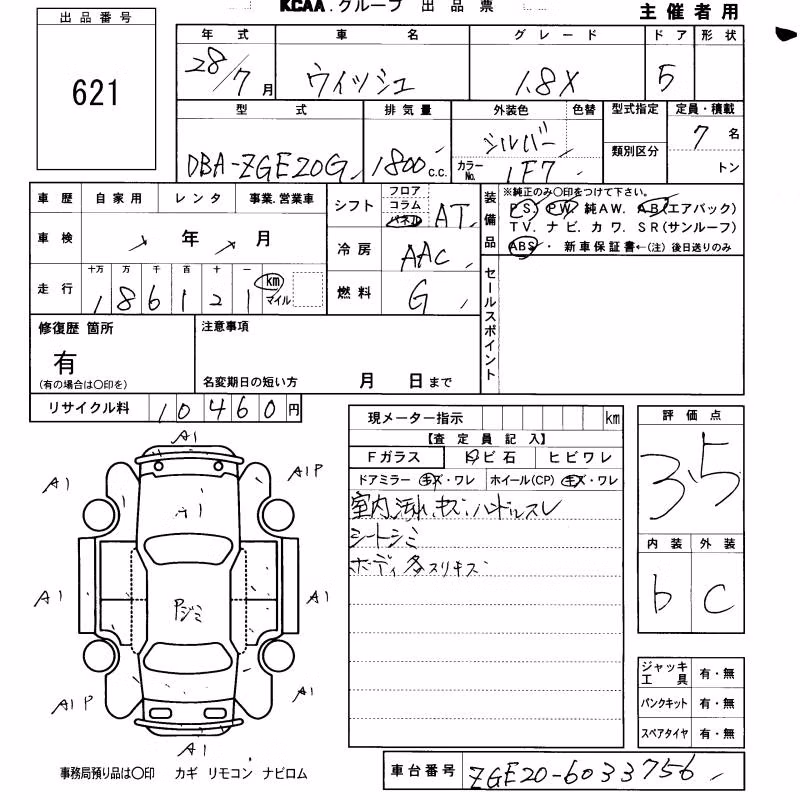 KCAA.グループ 出品票
主催者用
出品番号
621
年式 車名 グレード ドア 形状
28/7月 ウィッシュ 1.8X 5
型式 排気量 外装色 色替 型式指定 定員・積載
DBA-ZGE20G 1800c.c. シルバー 7名
カラーNo. 1F7 類別区分 トン
車歴 自家用 レンタ 事業.営業車
シフト フロア コラム パネル AT
装備品 ※純正のみ○印をつけて下さい。
PS. PW. 純AW. AB(エアバック)
TV. ナビ. カワ. SR(サンルーフ)
ABS・ 新車保証書←(注) 後日送りのみ
車検 年 月
冷房 AAC
走行 十万 万 千 百 十 一 km マイル
186121
燃料 G
セールスポイント
修復歴 箇所
有
(有の場合は○印を)
注意事項
名変期日の短い方 月 日まで
リサイクル料 10460円
現メーター指示 km
【査定員記入】
Fガラス トビ石 ヒビワレ
ドアミラー キズ・ワレ ホイール(CP) キズ・ワレ
室内汚れ、キズ、ハンドルスレ
シートシミ
ボディ各スリキズ
評価点
3.5
内装 外装
b C
A1
A1 A1P
A1
A1 A1
Pジミ
A1P A1
A1
ジャッキ工具 有・無
パンクキット 有・無
スペアタイヤ 有・無
事務局預り品は○印 カギ リモコン ナビロム
車台番号 ZGE20-6033756